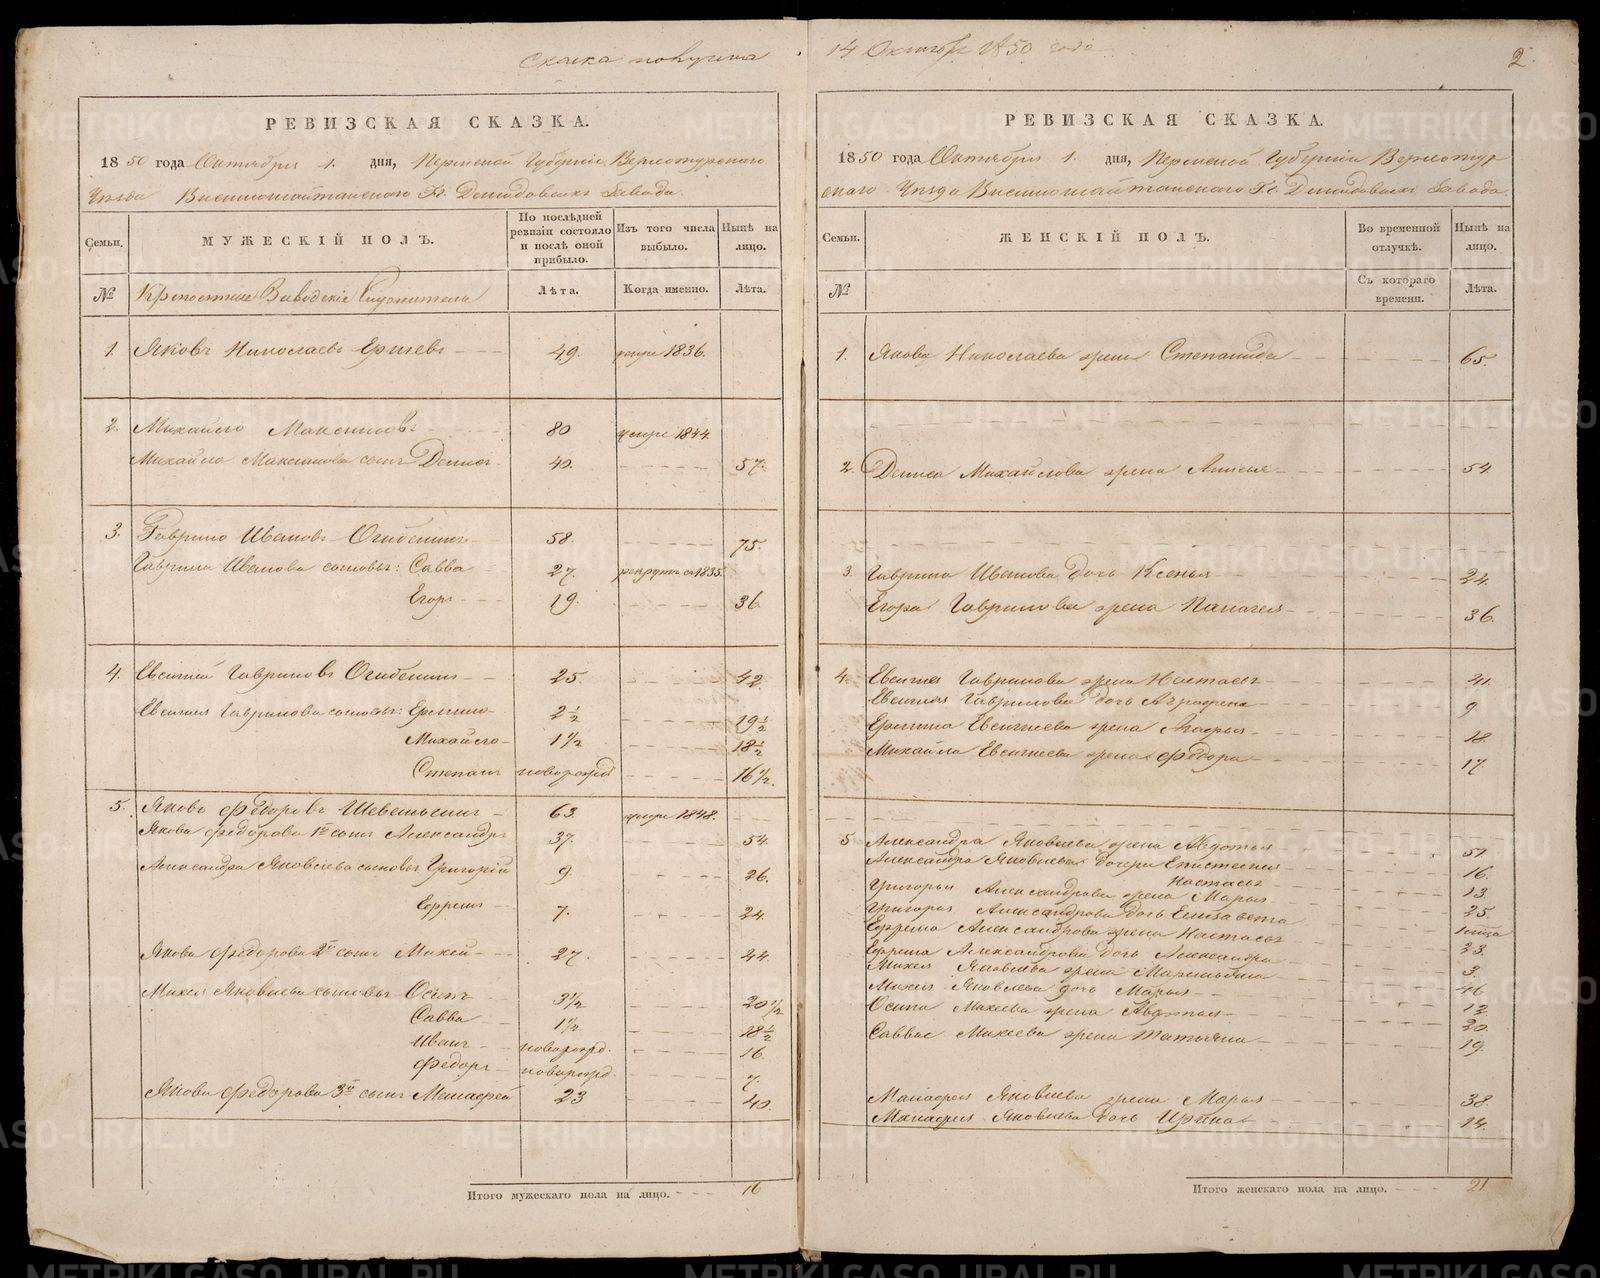 Сказка получена 14 Октябр 1850 года
2.
РЕВИЗСКАЯ СКАЗКА.
1850 года Октября 1. дня, Пермской Губерніи Верхотурскаго
Уѣзда Висимошайтанскаго Гг. Демидовыхъ Завода.
Семьи. МУЖЕСКІЙ ПОЛЪ. По послѣдней ревизіи состояло и послѣ оной прибыло. Изъ того числа выбыло. Нынѣ на лицо.
№ Крепостные Заводскіе Служители Лѣта. Когда именно. Лѣта.
1. Яковъ Николаевъ Ершевъ 49. умре 1836.
2. Михайло Максимовъ 80 умре 1844.
Михайла Максимова сынъ Денисъ 40. 57.
3. Гаврило Ивановъ Огибенинъ 58. 75.
Гаврила Иванова сыновья: Савва 27. рекрутъ съ 1835.
Егоръ 19. 36.
4. Евсигней Гавриловъ Огибенинъ 25. 42.
Евсигнея Гаврилова сыновья: Ермило 2 1/2 19 1/2
Михайло 1 1/2 18 1/2
Степанъ новорожд. 16 1/2.
5. Яковъ Федоровъ Шевелькинъ 63. умре 1848.
Якова Федорова 1й сынъ Александръ 37. 54.
Александра Яковлева сыновья Григорій 9. 26.
Ефремъ 7. 24.
Якова Федорова 2й сынъ Михей 27. 44.
Михея Яковлева сыновья Осипъ 3 1/2 20 1/2
Савва 1 1/2. 18 1/2
Иванъ новорожд. 16.
Федоръ новорожд. 7.
Якова Федорова 3й сынъ Менафей 23 40.
Итого мужескаго пола на лицо. 16
РЕВИЗСКАЯ СКАЗКА.
1850 года Октября 1. дня, Пермской Губерніи Верхотур
скаго Уѣзда Висимошайтанскаго Гг. Демидовыхъ Завода.
Семьи. ЖЕНСКІЙ ПОЛЪ. Во временной отлучкѣ. Нынѣ на лицо.
№ Съ котораго времени. Лѣта.
1. Якова Николаева жена Степанида 65.
2. Дениса Михайлова жена Анисья 54.
3. Гаврила Иванова дочь Ксенья 24.
Егора Гаврилова жена Палагея 36.
4. Евсигнея Гаврилова жена Настасья 41.
Евсигнея Гаврилова дочь Аграфена 9.
Ермила Евсигнеева жена Агафья 18.
Михайла Евсигнеева жена Федора 17.
5 Александра Яковлева жена Авдотья 51.
Александра Яковлева дочери Екистенья 16.
Настасья 13.
Григорья Александрова жена Марья 25.
Григорья Александрова дочь Елизавета
Ефрема Александрова жена Настасья 23.
Ефрема Александрова дочь Александра 3.
Михея Яковлева жена Маремьяна 46
Михея Яковлева дочь Марья 12.
Осипа Михеева жена Авдотья 20.
Саввы Михеева жена Татьяна 19.
Манафея Яковлева жена Марья 38.
Манафея Яковлева дочь Ирина 14.
Итого женскаго пола на лицо. 21
METRIKI.GASO-URAL.RU